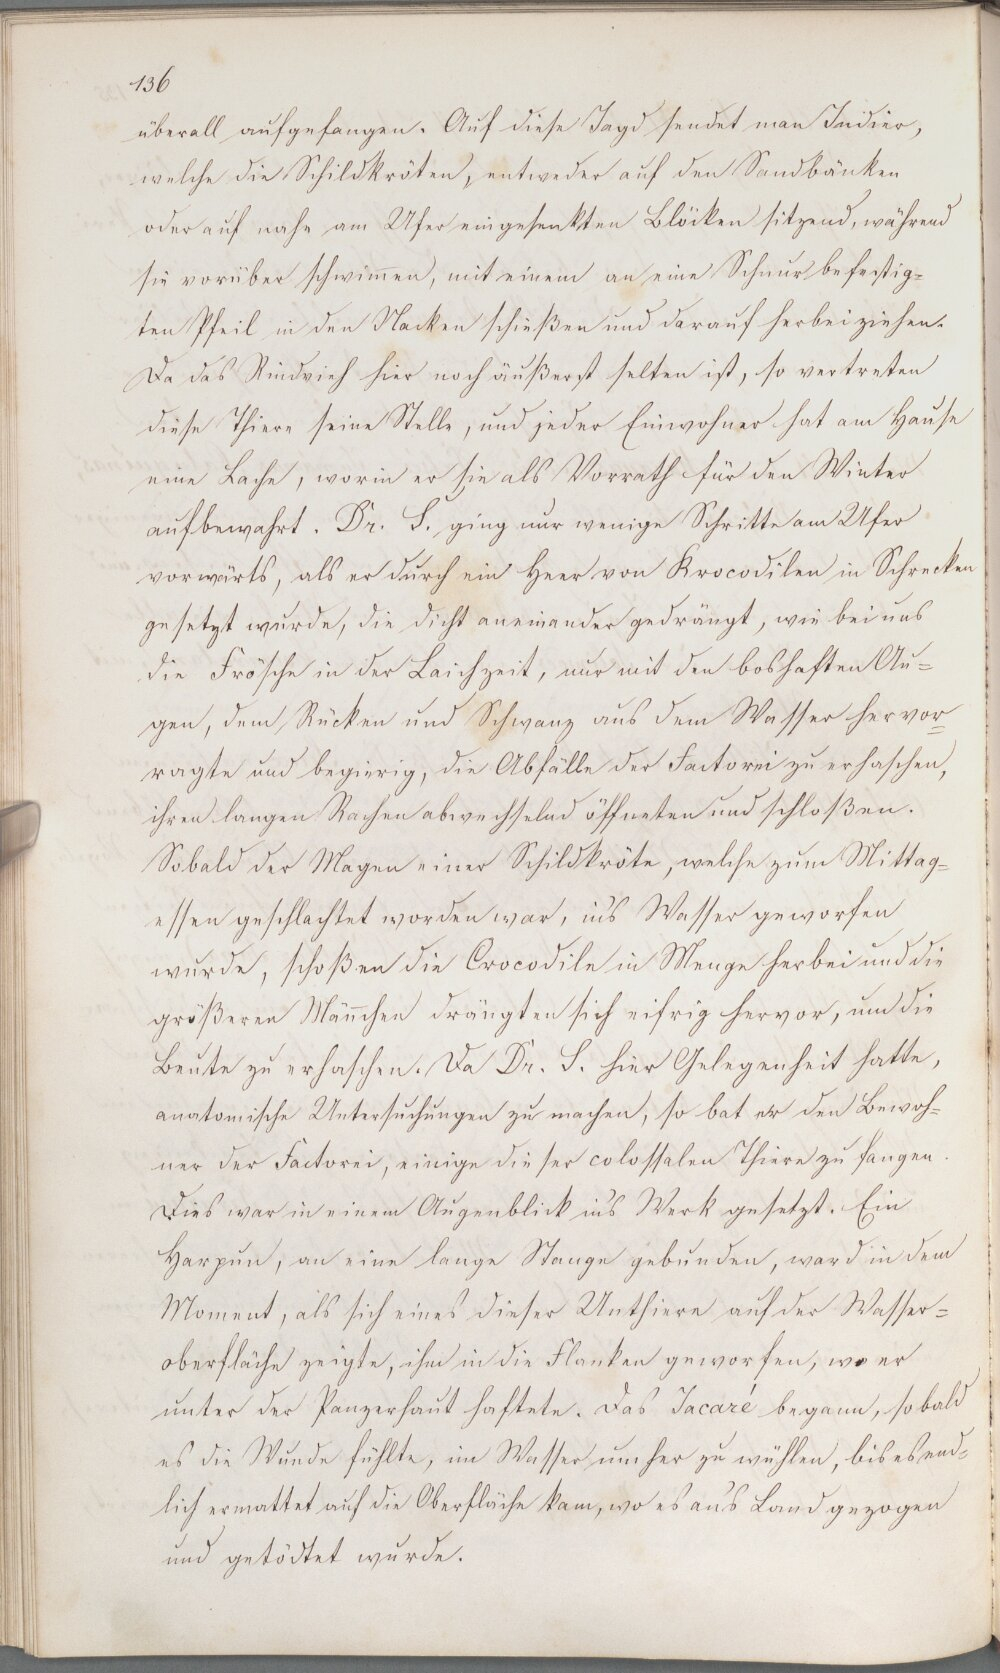 136
überall aufgefangen. Auf diese Jagd sendet man Indier,
welche die Schildkröten, entweder auf den Sandbänken
oder auf nahe am Ufer eingesenkten Blöcken sitzend, während
sie vorüber schwim̄en, mit einem an eine Schnur befestig=
ten Pfeil in den Nacken schießen und darauf herbeiziehen.
Da das Rindvieh hier noch äußerst selten ist, so vertreten
diese Thiere seine Stelle, und jeder Einwohner hat am Hause
eine Lache, worin er sie als Vorrath für den Winter
aufbewahrt. Dr. S. ging nur wenige Schritte am Ufer
vorwärts, als er durch ein Heer von Krocodilen in Schrecken
gesetzt wurde, die dicht aneinander gedrängt, wie bei uns
die Frösche in der Laichzeit, nur mit den boshaften Au=
gen, dem Rücken und Schwanz aus dem Wasser hervor=
ragte und begierig, die Abfälle der Factorei zu erhaschen,
ihren langen Rachen abwechselnd öffneten und schloßen.
Sobald der Magen einer Schildkröte, welche zum Mittag=
essen geschlachtet worden war, in's Wasser geworfen
wurde, schoßen die Crocodile in Menge herbei und die
größeren Män̄chen drängten sich eifrig hervor, um die
Beute zu erhaschen. Da Dr. S. hier Gelegenheit hatte,
anatomische Untersuchungen zu machen, so bat er den Bewoh=
ner der Factorei, einige dieser colossalen Thiere zu fangen.
Dies war in einem Augenblick in's Werk gesetzt. Ein
Harpun, an eine lange Stange gebunden, ward in dem
Moment, als sich eines dieser Unthiere auf der Wasser=
oberfläche zeigte, ihm in die Flanken geworfen, wo er
unter der Panzerhaut haftete. Das Jacaré begann, sobald
es die Wunde fühlte, im Wasser umher zu wühlen, bis es end=
lich ermattet auf die Oberfläche kam, wo es an's Land gezogen
und getödtet wurde.